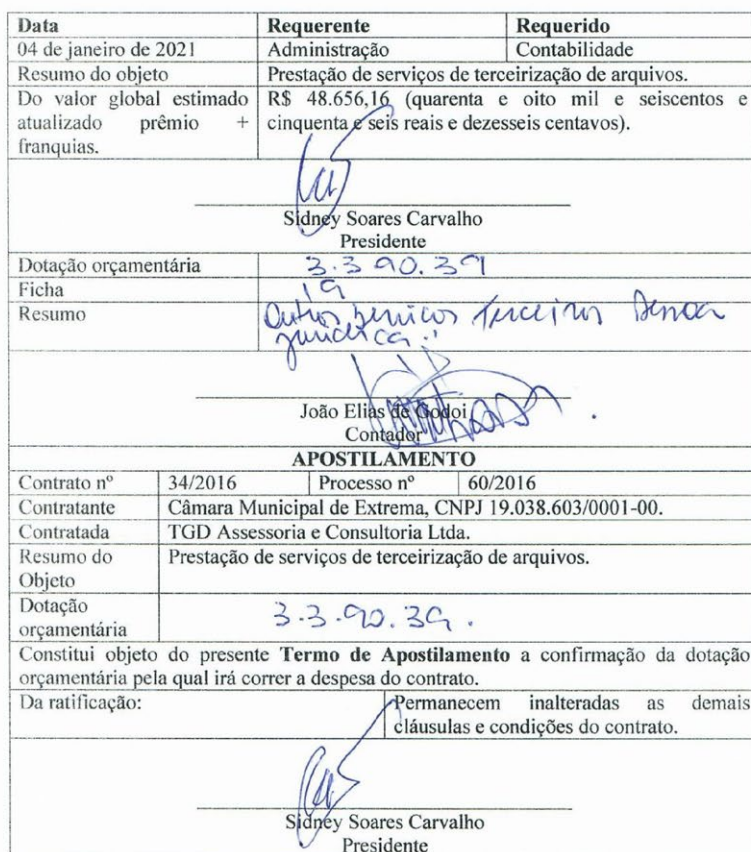 Data Requerente Requerido
04 de janeiro de 2021 Administração Contabilidade
Resumo do objeto Prestação de serviços de terceirização de arquivos.
Do valor global estimado R$ 48.656,16 (quarenta e oito mil e seiscentos e
atualizado prêmio + cinquenta e seis reais e dezesseis centavos).
franquias.
Sidney Soares Carvalho
Presidente
Dotação orçamentária 3.3.90.39
Ficha 19
Resumo Outros serviços Terceiros Pessoa
jurídica
João Elias de Godoi
Contador
APOSTILAMENTO
Contrato nº 34/2016 Processo nº 60/2016
Contratante Câmara Municipal de Extrema, CNPJ 19.038.603/0001-00.
Contratada TGD Assessoria e Consultoria Ltda.
Resumo do Prestação de serviços de terceirização de arquivos.
Objeto
Dotação
orçamentária 3.3.90.39.
Constitui objeto do presente Termo de Apostilamento a confirmação da dotação
orçamentária pela qual irá correr a despesa do contrato.
Da ratificação: Permanecem inalteradas as demais
cláusulas e condições do contrato.
Sidney Soares Carvalho
Presidente